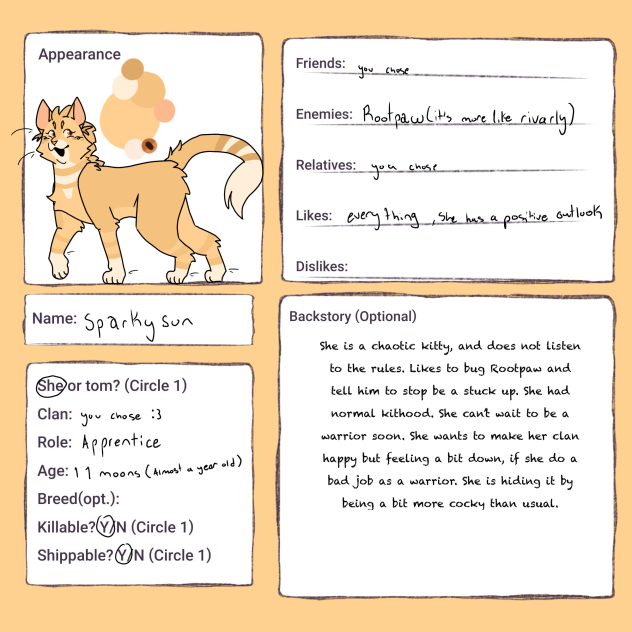 Appearance
Friends: you chose
Enemies: Rootpaw (it's more like rivarly)
Relatives: you chose
Likes: everything, she has a positive outlook
Dislikes:
Name: Sparkysun
She or tom? (Circle 1)
Clan: you chose :3
Role: Apprentice
Age: 11 moons (Almost a year old)
Breed(opt.):
Killable? Y/N (Circle 1)
Shippable? Y/N (Circle 1)
Backstory (Optional)
She is a chaotic kitty, and does not listen
to the rules. Likes to bug Rootpaw and
tell him to stop be a stuck up. She had
normal kithood. She can't wait to be a
warrior soon. She wants to make her clan
happy but feeling a bit down, if she do a
bad job as a warrior. She is hiding it by
being a bit more cocky than usual.